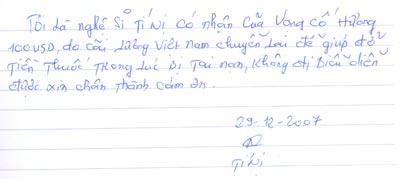 Tôi là nghệ sĩ TiNi có nhận của Vọng cổ Hương
100USD, do cải lương Việt nam chuyển lại để giúp đỡ
Tiền Thuốc Trong Lúc bị Tai nạn, không đi biểu diễn
được xin chân Thành cảm ơn.
29-12-2007
TiNi